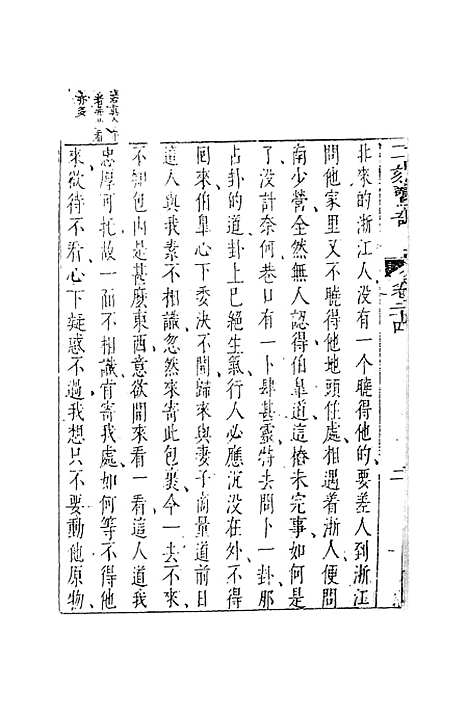 二刻驚奇
卷二十四
二
北來的浙江人沒有一个曉得他的要差人到浙江
問他家里又不曉得他地頭住處相遇着浙人便問
南少營全然無人認得伯皐道這樁未完事如何是
了沒計奈何巷口有一卜肆甚靈特去問卜一卦那
占卦的道卦上巳絕生氣行人必應沉沒在外不得
囘來伯皐心下委決不開歸來與妻子商量道前日
這人與我素不相識忽然來寄此包裹今一去不來
不知包內是甚麽東西意欲開來看一看這人道我
忠厚可托故一面不相識肯寄我處如何等不得他
來欲待不看心下疑惑不過我想只不要動他原物